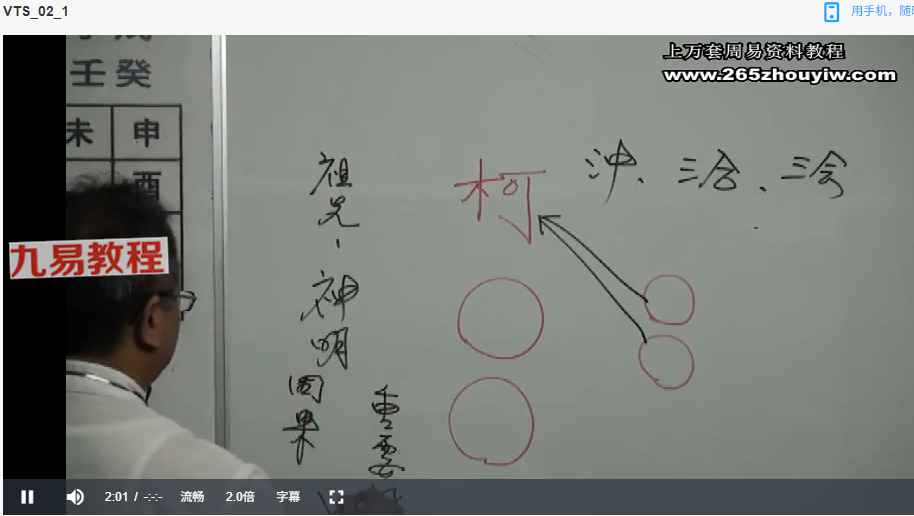 VTS_02_1
用手机，随时
上万套周易资料教程
www.265zhouyiw.com
壬癸
未 申
酉
九易教程
柯
冲、三合、三会
祖先、神明
因果
重要
2:01 / -:-:-
流畅
2.0倍
字幕